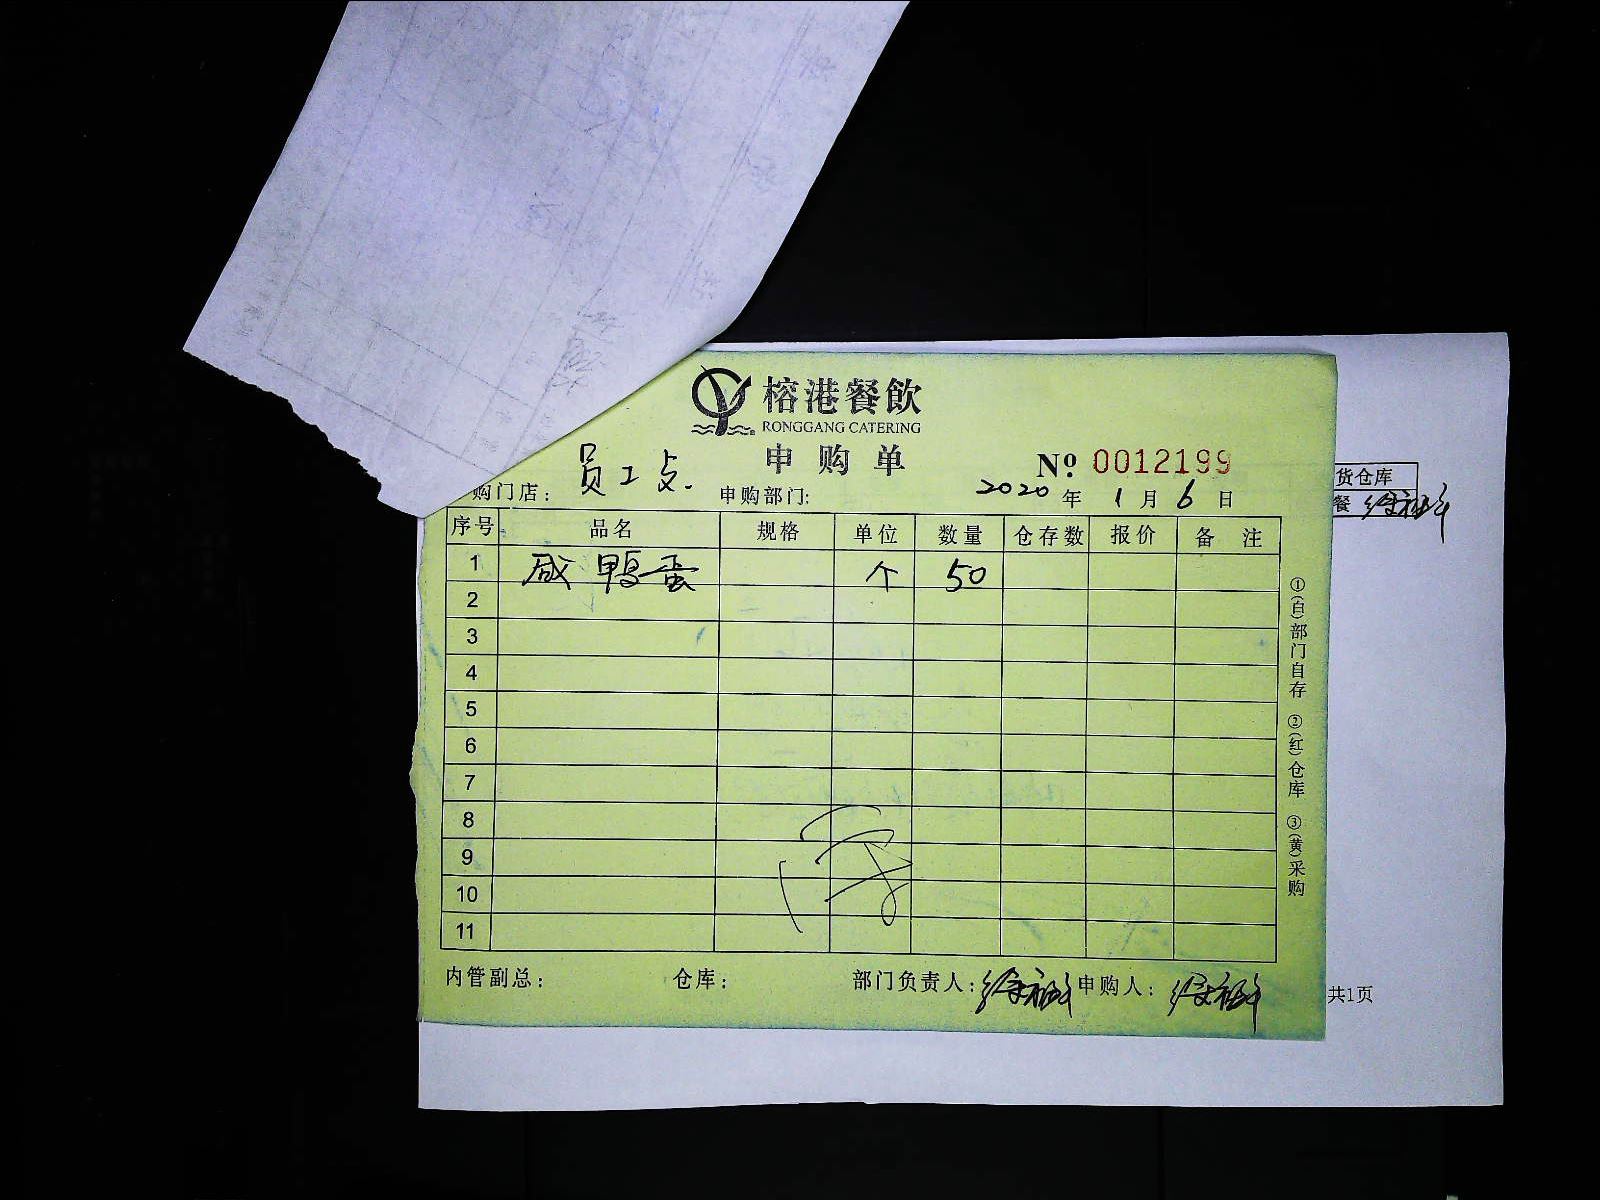 榕港餐飲
RONGGANG CATERING
申购单
№ 0012199
购门店: 员工点. 申购部门: 2020 年 1 月 6 日
序号 品名 规格 单位 数量 仓存数 报价 备 注
1 咸鸭蛋 个 50
2
3
4
5
6
7
8
9
10
11
内管副总: 仓库: 部门负责人: 申购人:
①(白)部门自存 ②(红)仓库 ③(黄)采购
货仓库
餐
共1页